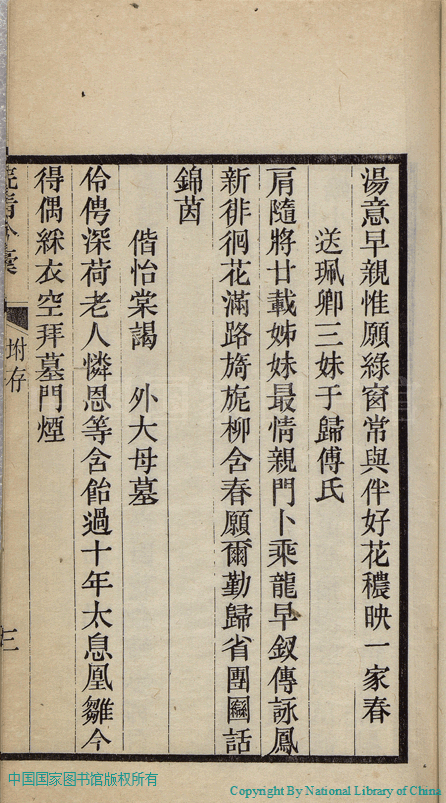 湯意早親惟願綠窗常與伴好花穠映一家春
送珮卿三妹于歸傅氏
肩隨將廿載姊妹最情親門卜乘龍早釵傳詠鳳
新徘徊花滿路旖旎柳舍春願爾勤歸省團圞話
錦茵
偕怡棠謁 外大母墓
伶俜深荷老人憐恩等含飴過十年太息凰雛今
得偶綵衣空拜墓門煙
坿存
三
中国国家图书馆版权所有
Copyright By National Library of China